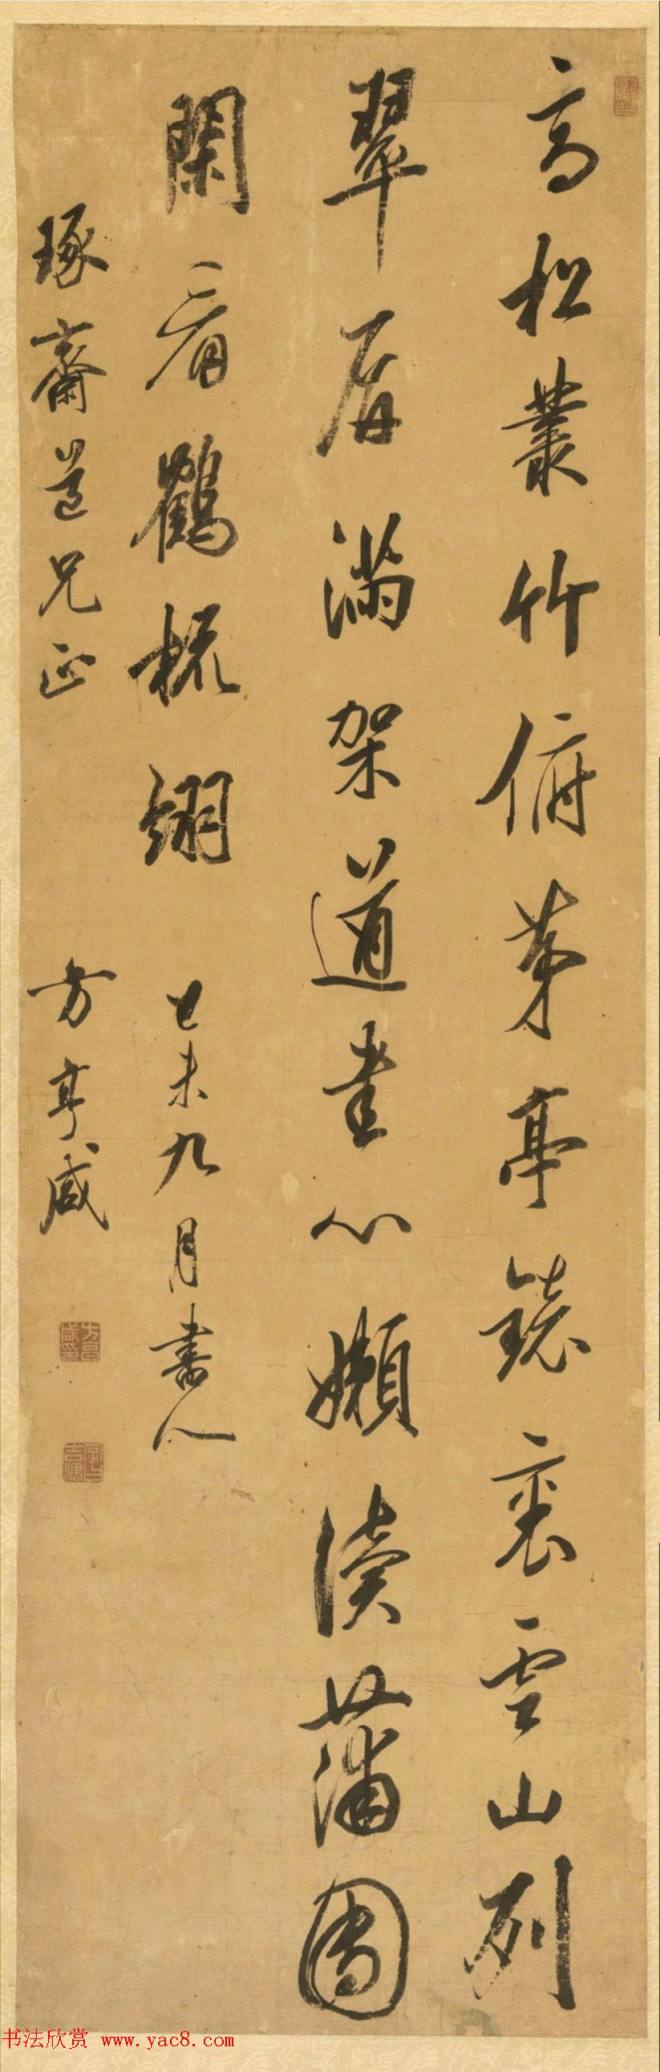 高松叢竹俯茅亭鏡裏雲山列
翠屏滿架道書心嬾讀蒲團
閑看鶴梳翎
己未九月書
琢齋道兄正
方亨咸
书法欣赏 www.yac8.com